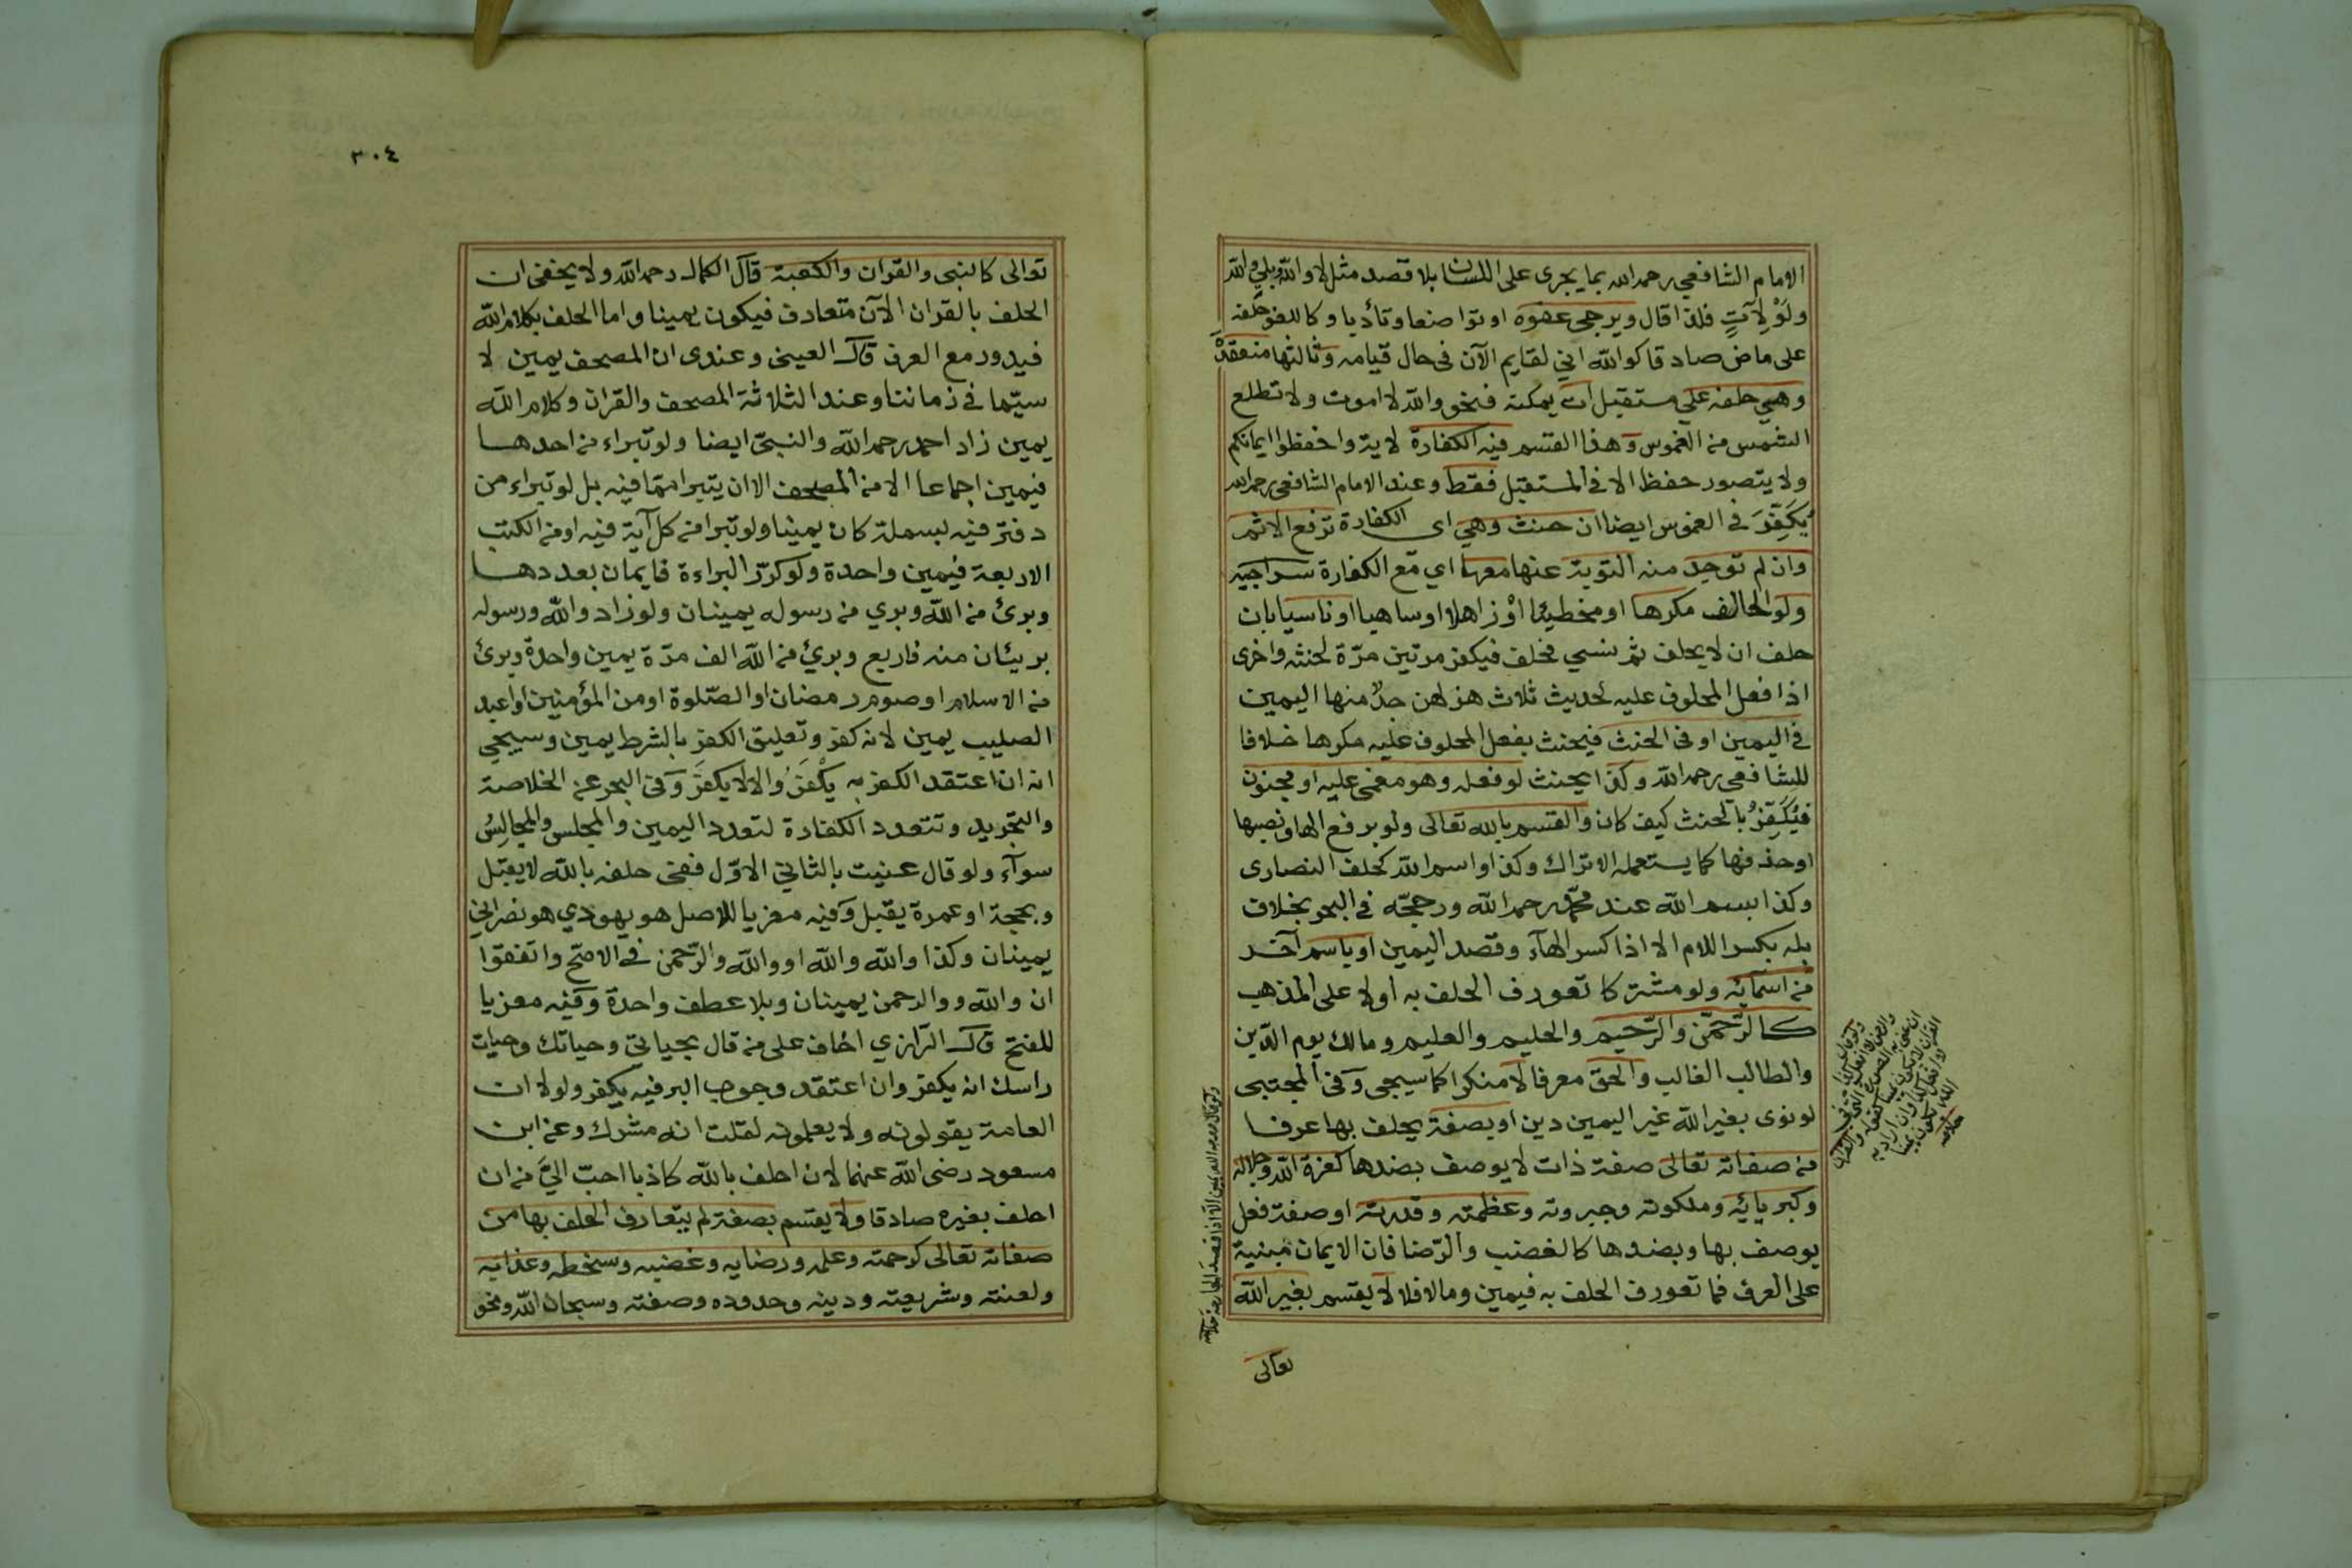 الامام الشافعي رحمه الله بما يجرى على اللسان بلا قصد مثل لا والله وبلى والله
ولَوْ لِآتٍ فلذا قال ويرجى عفوه او تواضعا وتأدبا وكاللغو حلفه
على ماض صادقا كوالله اني لقايم الآن فى حال قيامه وثالثها منعقدة
وهي حلفه على مستقبل ات يمكنه فنحو والله لا اموت ولا تطلع
الشمس من الغموس وهذا القسم فيه الكفارة لاية واحفظوا ايمانكم
ولا يتصور حفظ الا فى المستقبل فقط وعند الامام الشافعى رحمه الله
يُكَفِّرَ في الغموس ايضا ان حنث وهي اى الكفارة ترفع الاثم
وان لم توجد منه التوبة عنها معها اي مع الكفارة سراجيه
ولو الحالف مكرها او مخطيئا اوْ زاهلا او ساهيا او ناسيا بان
حلف ان لا يحلف ثم نسي فحلف فيكفر مرتين مرّة لحنثه واخرى
اذا فعل المحلوف عليه لحديث ثلاث هزلهن جدٌ منها اليمين
في اليمين او فى الحنث فيحنث بفعل المحلوف عليه مكرها خلافا
للشافعى رحمه الله وكذا يحنث لو فعله وهو مغمى عليه او مجنون
فَيُكَفِّرُ بالحنث كيف كان والقسم بالله تعالى ولو برفع الها ونصبها
او حذفها كما يستعمله الاتراك وكذا واسم الله كحلف النصارى
وكذا بسم الله عند محمّد رحمه الله ورجحّه في البحر بخلاف
بله بكسر اللام الا اذا كسر الهآء وقصد اليمين او باسم آخر
من اسمآئه ولو مشتركا تعورف الحلف به اولا على المذهب
كالرّحمّن والرّحيم والحليم والعليم ومالك يوم الدّين
والطالب الغالب والحق معرفا لا منكرا كما سيجى وفى المجتبى
لو نوى بغير الله غير اليمين دين او بصفة يحلف بها عرفا
من صفاته تعالى صفة ذات لا يوصف بضدها كعزة الله وجلاله
وكبريائه وملكوته وجبروته وعظمته وقدرته او صفة فعل
يوصف بها وبضدها كالغضب والرّضا فان الايمان مبنية
على العرف فما تعورف الحلف به فيمين وما لا فلا لا يقسم بغير الله
تعالى
٣٠٤
تعالى كالنبى والقران والكعبة قال الكمال رحمه الله ولا يخفى ان
الحلف بالقران الآن متعارف فيكون يمينا واما الحلف بكلام الله
فيدور مع العرف قال العينى وعندى ان المصحف يمين لا
سيّما في زماننا وعند الثلاثة المصحف والقران وكلام الله
يمين زاد احمد رحمه الله والنبىّ ايضا ولو تبراء من احدها
فيمين اجماعا الا من المصحف الا ان يتبرا ممّا فيه بل لو تبراء من
دفتر فيه بسملة كان يمينا ولو تبرا من كل آية فيه او من الكتب
الاربعة فيمين واحدة ولو كرّر البراءة فايمان بعددها
وبرئ من الله وبري من رسوله يمينان ولو زاد والله ورسوله
بريئان منه فاربع وبرئ من الله الف مرّة يمين واحدة وبرئ
من الاسلام او صوم رمضان او الصّلوة او من المؤمنين او اعبد
الصليب يمين لانه كفر وتعليق الكفر بالشرط يمين وسيجي
انه ان اعتقد الكفر به يكْفَرُ والا لا يكفرَ وفى البحر عن الخلاصة
والتجريد وتتعدد الكفارة لتعدد اليمين والمجلس والمجالِسُ
سوآء ولو قال عنيت بالثاني الاوّل ففى حلفه بالله لا يقبل
وبحجة او عمرة يقبل وفيه معزيا للاصل هو يهودي هو نصراني
يمينان وكذا والله والله او والله والرّحمن في الاصحّ واتفقوا
ان والله ووالرحمن يمينان وبلا عطف واحدة وفيه معزيا
للفتح قال الرّازي اخاف على من قال بحياتى وحياتك وحيات
راسك انه يكفر وان اعتقد وجوب البر فيه يكفر ولولا ان
العامة يقولونه ولا يعلمونه لقلت انه مشرك وعن ابن
مسعود رضى الله عنهما لان احلف بالله كاذبا احبّ اليَّ من ان
احلف بغيره صادقا ولا يقسم بصفة لم يتعارف الحلف بها من
صفاته تعالى كرحمته وعلمه ورضايه وغضبه وسخطه وعذابه
ولعنته وشريعته ودينه وحدوده وصفته وسبحان الله ونحو